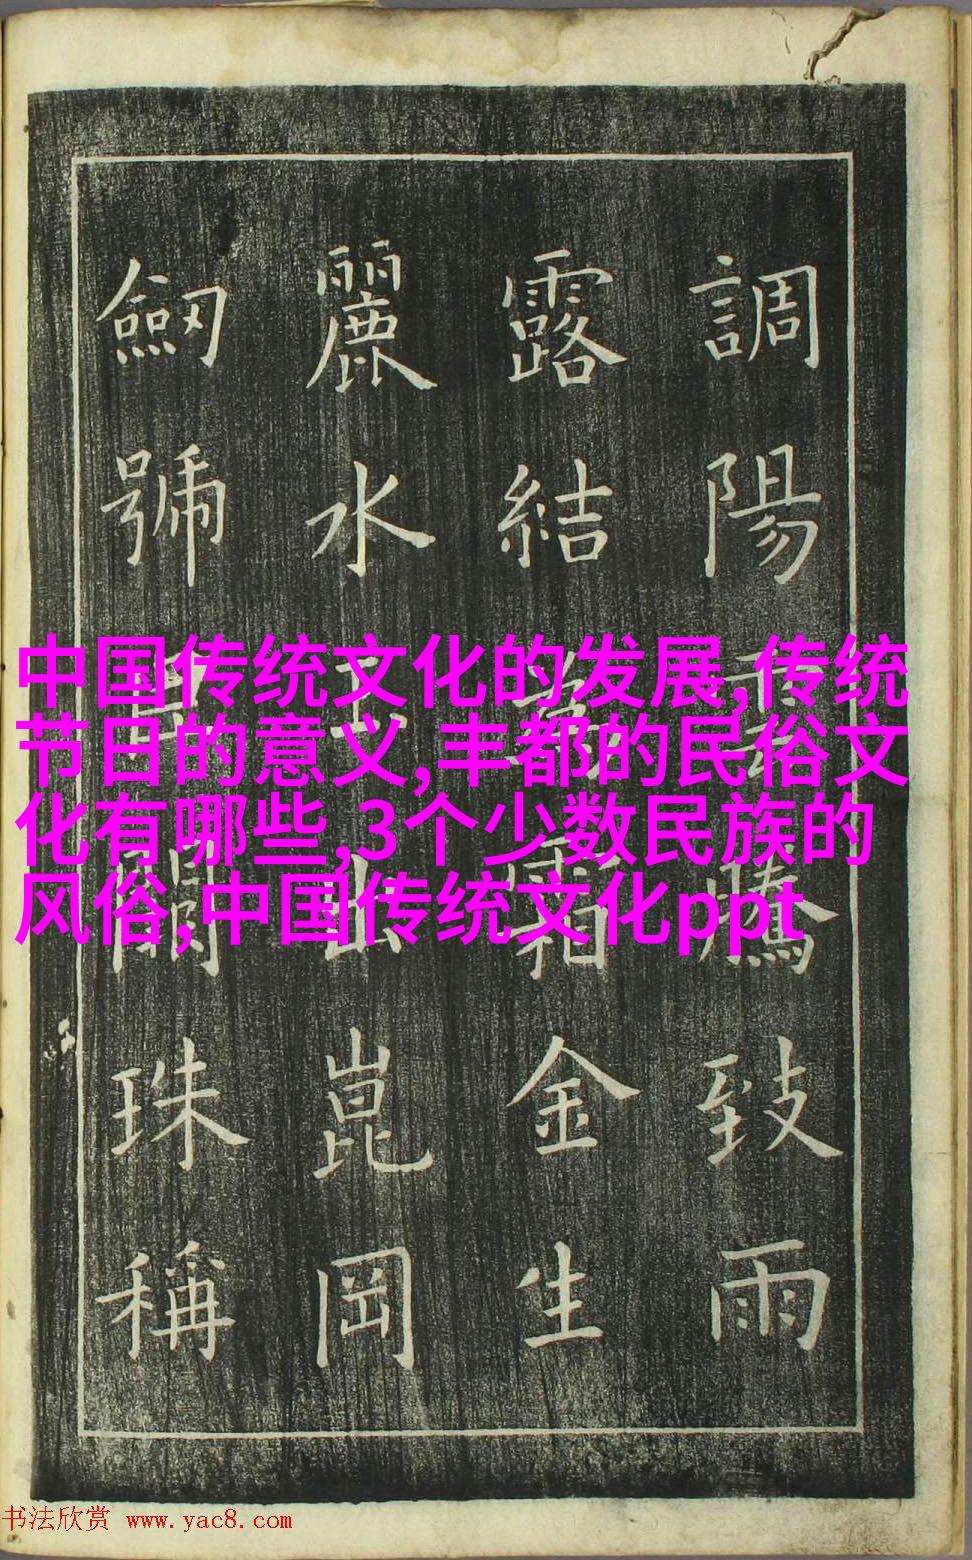 調陽雲騰致雨
露結為霜金生
麗水玉出崑岡
劒號巨闕珠稱
中国传统文化的发展,传统
节目的意义,丰都的民俗文
化有哪些,3个少数民族的
风俗,中国传统文化ppt
书法欣赏 www.yac8.com